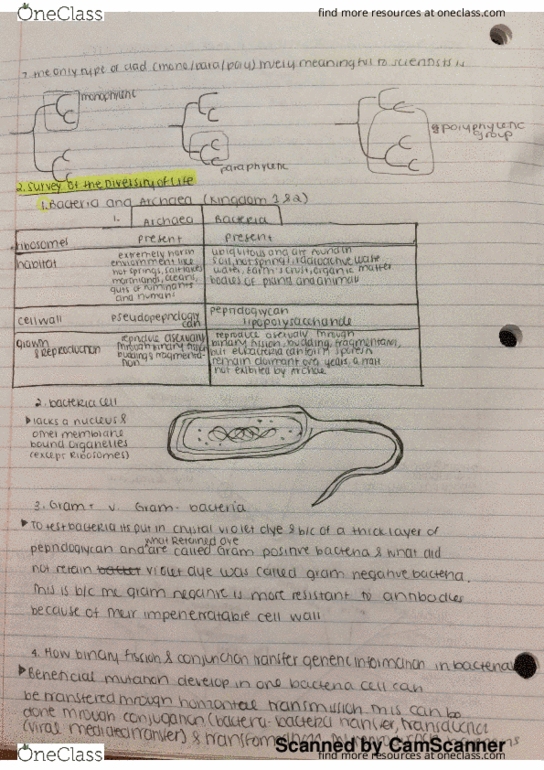 OneClass
find more resources at oneclass.com
? the only type of clad (mono/para/poly) truely meaningful to scientists is
monophyletic
paraphyletic
polyphyletic
group
2. Survey of the Diversity of Life
1. Bacteria and Archaea (Kingdom 1 & 2)
1. Archaea Bacteria
ribosomes present present
habitat
extremely harsh
environment like
hot springs, salt lakes
marshlands, oceans,
guts of ruminants
and humans
ubiquitous and are found in
soil, hot springs, radioactive waste
water, Earth's crust, organic matter
bodies of plants and animals
cell wall
pseudopepndogly
can
pepndoglycan
lipopolysacchande
grown
& reproduction
reproduce asexually
through binary fission
budding & fragmenta-
non.
reproduce asexually through
binary fission, budding, fragmentation,
but eubacteria can form spores to
remain dormant over years, a trait
not exibited by Archae
2. bacteria cell
▸ lacks a nucleus &
other membrane
bound organelles
(except Ribosomes)
3. Gram+ v. Gram- bacteria
▸ To test bacteria its put in crystal violet dye & b/c of a thick layer of
what retained dye
pepndoglycan and are called Gram positive bacteria & what did
not retain violet dye was called gram negative bacteria.
This is b/c the gram neganic is more resistant to annbodies
because of their impenetratable cell wall
4. How binary fission & conjunction transfer genetic information in bacteria
▸ Beneficial mutation develop in one bacteria cell can
be transfered through horizontal transmission this can be
done through conjugation (bacteria-bacteria transfer, transduction
(viral mediated transfer) &
OneClass
Scanned by CamScanner
find more resources at oneclass.com